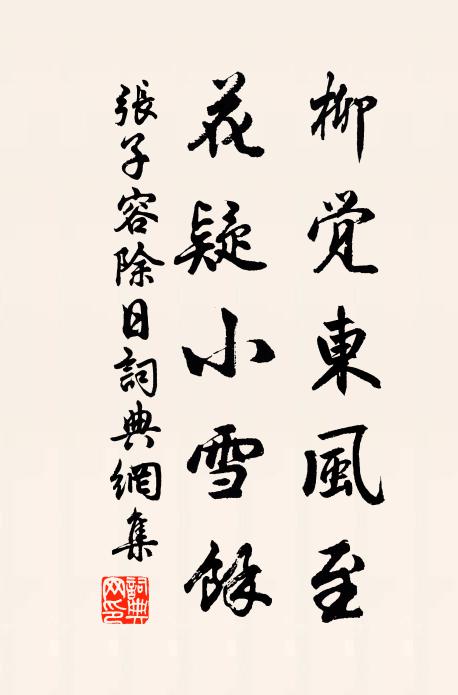 柳覺東風至
花疑小雪餘
張子容除日詞典網集
詞典網印